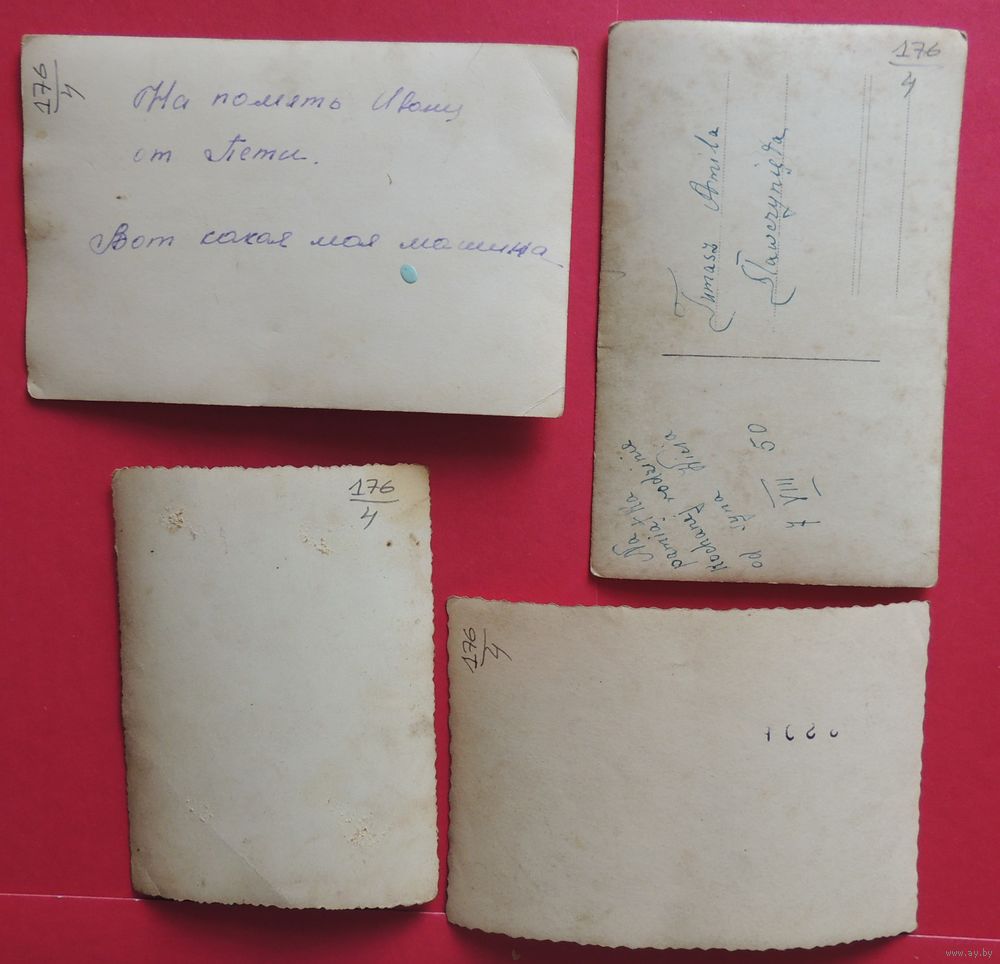 176
4
На помять Ивону
от Пети.
Вот какая моя машина
176
4
Tumasz Amila
Ławerynięta
Na + Ka
pamią
kochanej rodzinie
od syna
7 VIII 50
176
4
176
4
www.ay.by